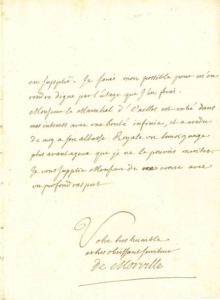 en supplie. Je ferai mon possible pour m'en
rendre digne par l'usage que j'en ferai.
Monsieur le Maréchal d' est entré dans
mes interests avec une bonté infinie, et a rendu
de moy a son altesse Royale un temoignage
plus avantageux que je ne le pouvois meriter.
Je vous supplie Monsieur de me croire avec
un profond respect.
Votre tres humble
et tres obeissant serviteur
de Morville